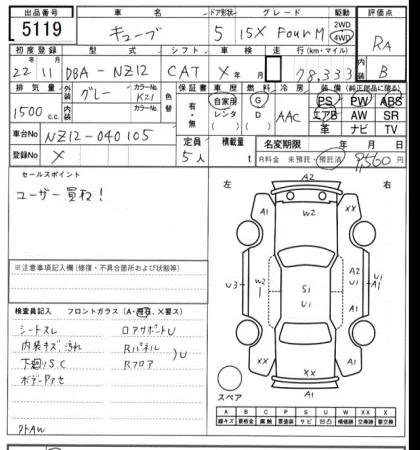 出品番号 車名 ドア形状 グレード 駆動 評価点
5119 キューブ 5 15X FourM 2WD 4WD RA
初度登録 型式 シフト 車検 走行 (km・マイル) 内装
22年11月 DBA-NZ12 CAT X年 月 78,333 B
排気量 外装 カラーNo. 色替 保証書 車歴 燃料 冷房 装備 (純正部品に限る)
1500 c.c. グレー K21 有・無 自家用 レンタ G D AAC PS PW ABS
内装 カラーNo. エアB AW SR
革 ナビ TV
車台No NZ12-040105 定員 積載量 名変期限 年 月 日
登録No X 5人 t R料金 未預託・預託済 9,560円
セールスポイント 左 右
ユーザー買取!
A2
A1 W2 XX
U3 W2 A2 U1 A1
1 S1 U1
A1
XX XX
A1
A2
スペア
※注意事項記入欄 (修復・不具合箇所および状態等)
検査員記入 フロントガラス (A・飛石、X要ス)
シートスレ ロアサポートU
内装キズ汚れ Rパネル
下廻りSC Rフロア )U
ボデーPアセ
アトAW
A B C P S U W X XX
線キズ 要板金 腐蝕 要塗装 サビ 凹凸 補修跡 要交換 交換済